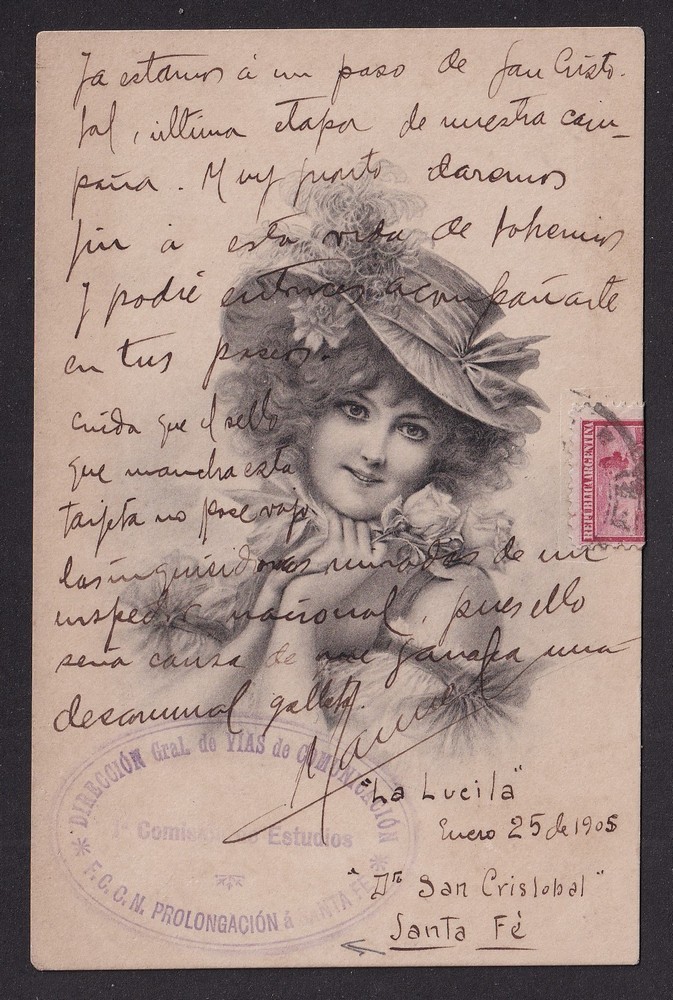 Ya estamos á un paso de San Cristo-
bal, última etapa de nuestra cam-
paña. Muy pronto daremos
fin á esta vida de bohemios
y podré entonces acompañarte
en tus paseos.
Cuida que el sello
que mancha esta
tarjeta no pase bajo
las inquisidoras miradas de un
inspector nacional, pues ello
sería causa de me ganara una
descomunal galleta.
Manuel
"La Lucila"
Enero 25 de 1905
"Dto San Cristobal"
Santa Fé
REPUBLICA ARGENTINA
DIRECCIÓN Gral. de VIAS de COMUNICACIÓN
1a Comisión de Estudios
F.C.C.N. PROLONGACIÓN á SANTA FE